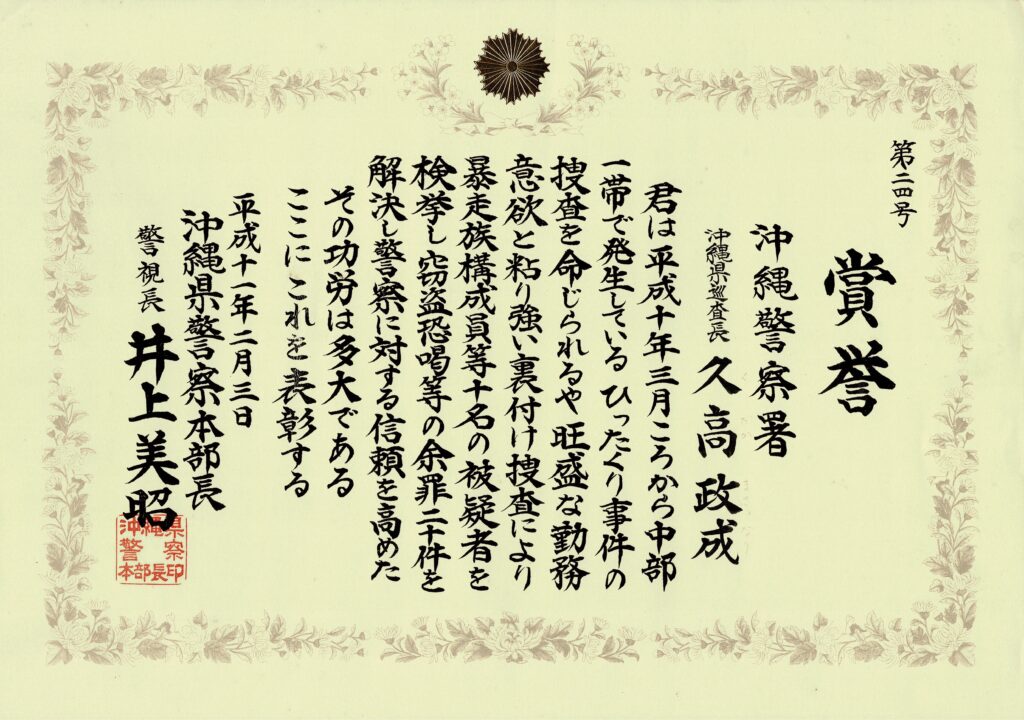 第二四号
賞誉
沖縄警察署
沖縄県巡査長 久高政成
君は平成十年三月ころから中部
一帯で発生している ひったくり事件の
捜査を命じられるや 旺盛な勤務
意欲と粘り強い裏付け捜査により
暴走族構成員等十名の被疑者を
検挙し 窃盗恐喝等の余罪二十件を
解決し警察に対する信頼を高めた
その功労は多大である
ここに これを表彰する
平成十一年二月三日
沖縄県警察本部長
警視長 井上美昭
沖縄県警察本部長印